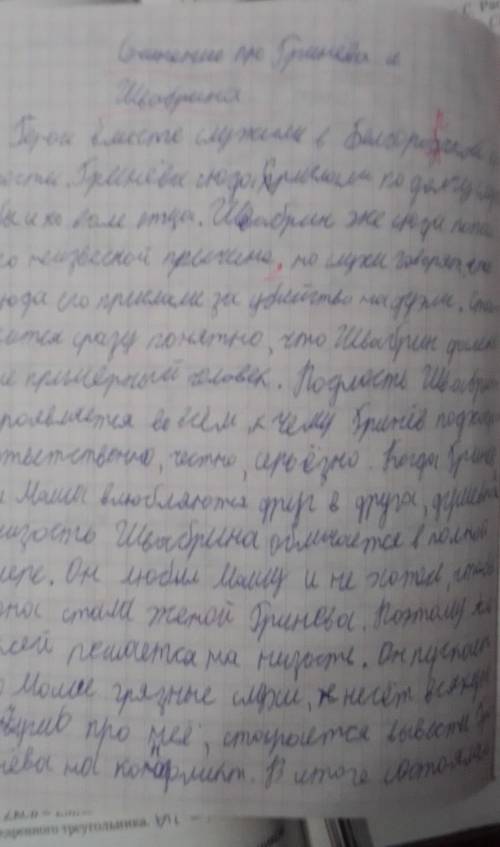 Сочинение про Гринёва и
Швабрина
Герои вместе служили в Белогорской
ности. Гринёва сюда прислали по долгу
бы и по воле отца. Швабрин же сюда попал
по неизвесной причине, но слухи говорят, что
сюда его прислали за убийство на дуэли.
сразу понятно, что Швабрин далеко
не примерный человек. Подлость
проявляется во всём, к чему Гринёв
ответственно, честно, серьёзно. Когда
и Маша влюбляются друг в друга,
низость Швабрина обличается в полной
мере. Он любил Машу и не хотел, чтобы
она стала женой Гринёва. Поэтому
решается на низость. Он пускает
о Маше грязные слухи, несёт
про неё, старается вывести
нёва на конфликт. В итоге состоялась
еаренного треугольника.